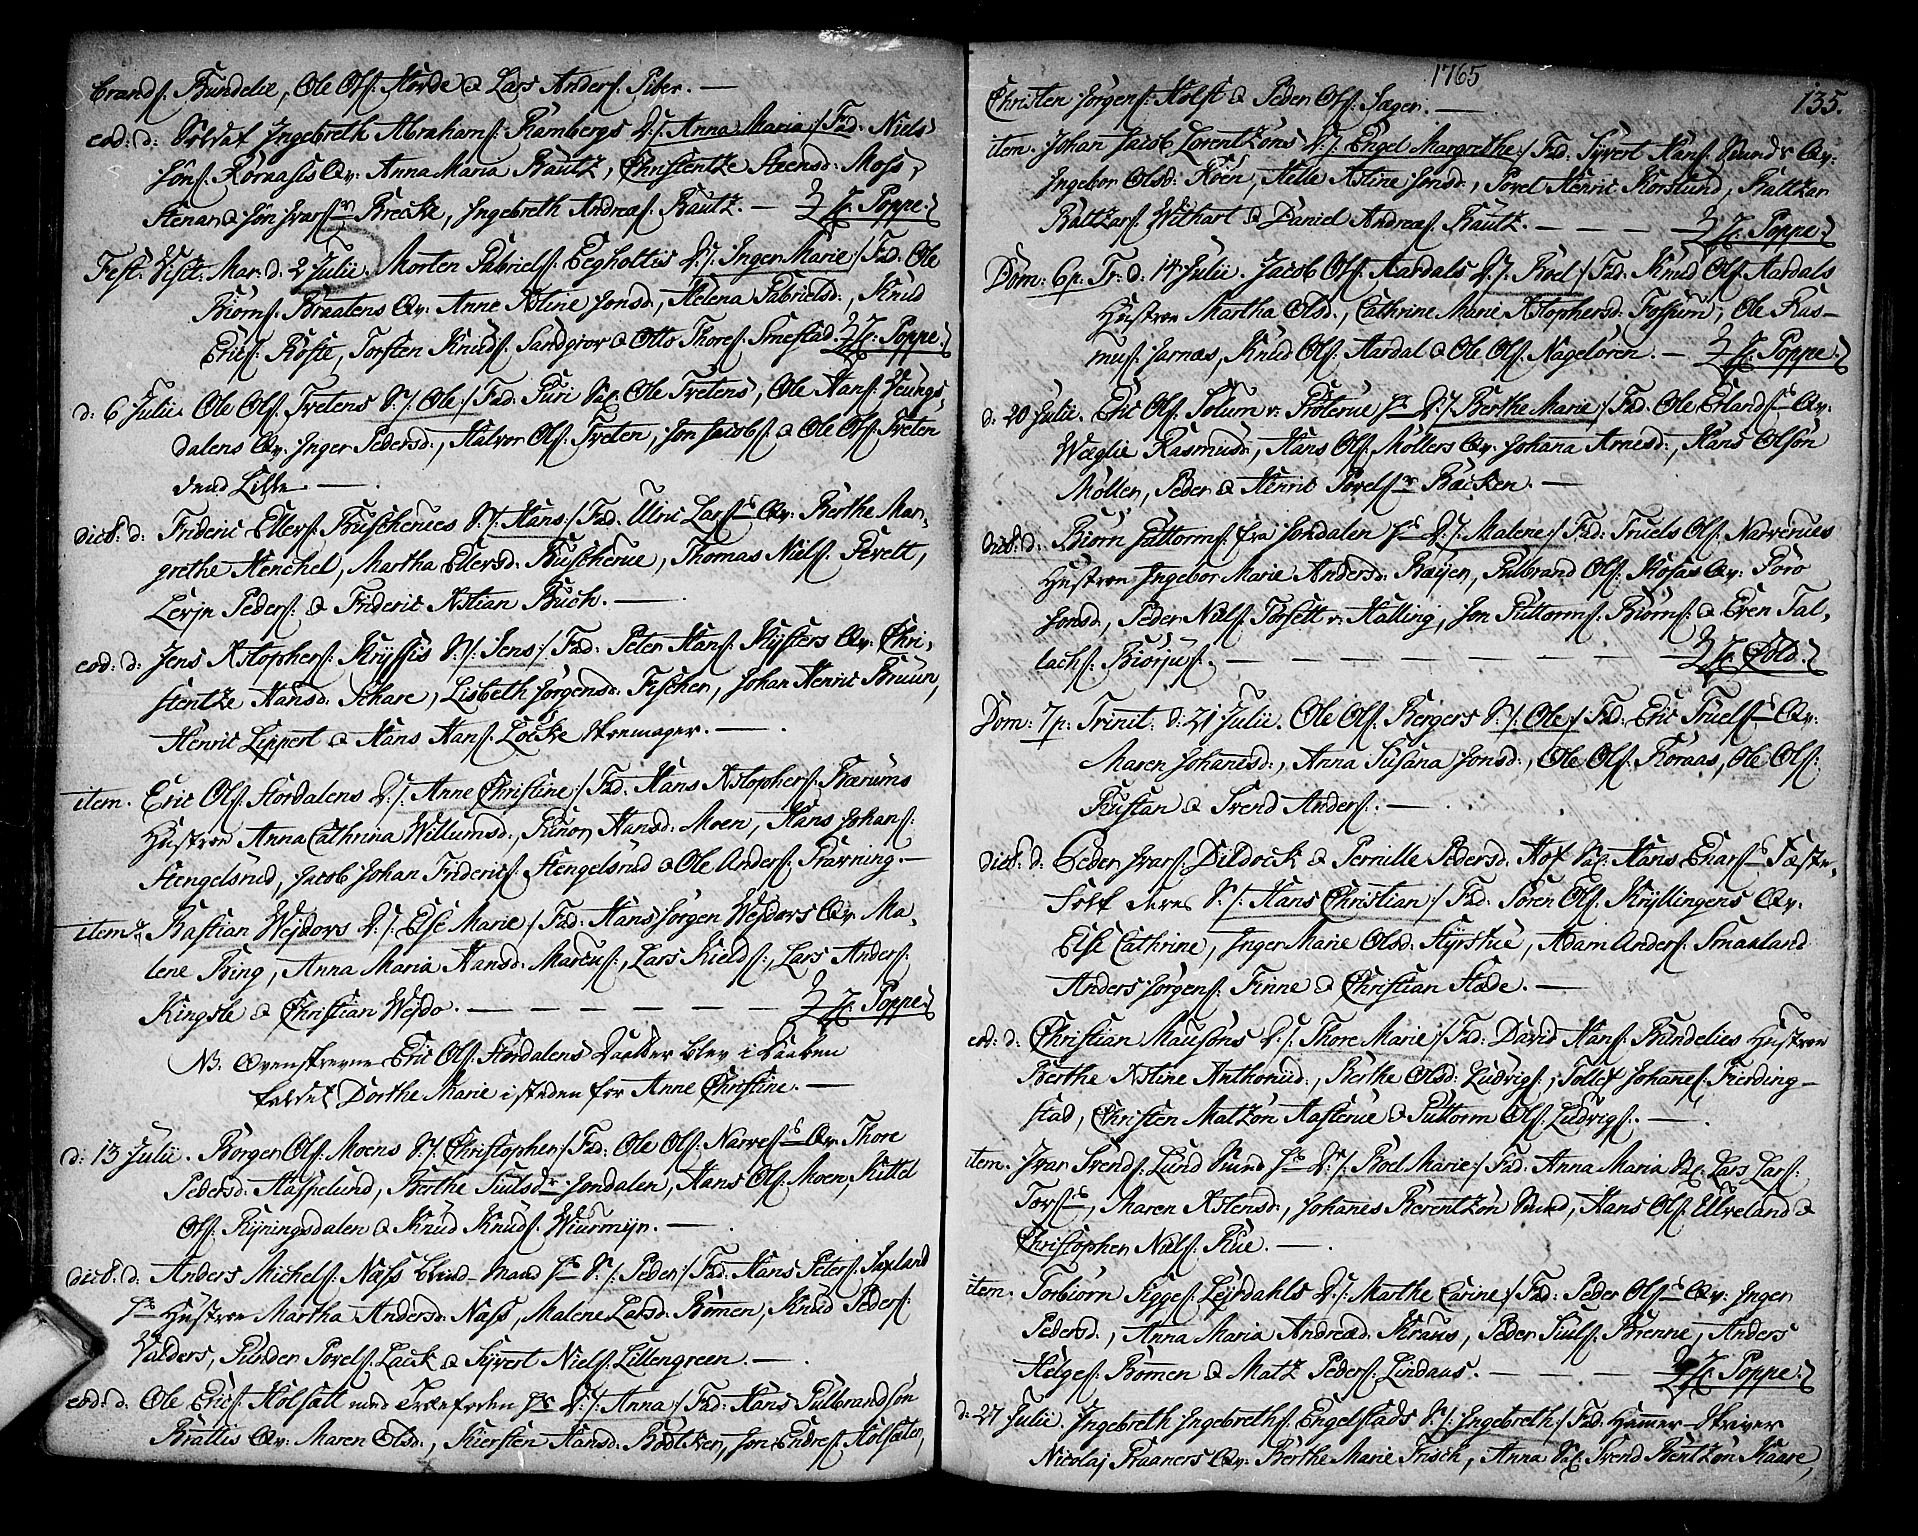 brands: Bundelie, Ole Ols: Horde & Lars Anders: Piber. —
eod: d: Soldat Ingebreth Abrahams: Rambergs D:/: Anna Maria:/ Fad: Niels
Jöns: Koraasis Qv: Anna Maria Bautz, Christentze Steensd: Moss,
Stenar & Jon Ivars: Brecke, Ingebreth Andreæs: Bautz. — H: Poppe.
Fest: Visit: Mar: d: 2 Julii. Morten Gabriels: Eegholtis D:/: Inger Marie:/ Fad: Ole
Biörns: Braatens Qv: Anne Kstine Jonsd:, Helena Gabrielsd:, Knud
Erics: Röste, Torsten Knuds: Sandgrov & Otto Thores: Smestad. H: Poppe.
d: 6 Julii. Ole Ols: Tretens S:/: Ole:/ Fad: Guri Sal: Ole Tretens, Ole Hans: Heungs-
dalens Qv: Inger Pedersd:, Halvor Ols: Treten, Jon Jacobs: & Ole Ols: Treten
dend Lille. —
dict: d: Frideric Ellers: Buscherues S:/: Hans:/ Fad: Ulric Lars: Qv: Berthe Mar-
grethe Henchel, Martha Ellersd: Buscherue, Thomas Niels: Pevelt,
Peders: & Frideric Kstian Buch. —
eod: d: Jens Kstophers: Kryssis S:/: Jens:/ Fad: Peter Hans: Kysters Qv: Chri-
stentze Hansd: Skare, Lisbeth Jörgensd: Fischer, Johan Henric Bruun,
Henric Lippert & Hans Hans: Locke Skomager. —
item. Eric Ols: Stordalens D:/: Anne Christine:/ Fad: Hans Kstophers: Bærums
Hustroe Anna Cathrina Willumsd:, Gunor Hansd: Moen, Hans Johans:
Stengelsrud, Jacob Johan Friderics: Stengelsrud & Ole Anders: Gravning. —
item. Bastian Wejdors D:/: Else Marie:/ Fad: Hans Jörgen Wejdors Qv: Ma-
lene Bing, Anna Maria Hansd: Marcus:, Lars Kields:, Lars Anders:
Kingsle & Christian Wejdo. — H: Poppe.
NB. Ovenskrevne Eric Ols: Stordalens Daatter blev i Daaben
kaldet Dorthe Marie i steden for Anne Christine. —
d: 13 Julii. Börger Ols: Moens S:/: Christopher:/ Fad: Ole Ols: Narves: Qv: Thore
Pedersd: Haspelund, Berthe Juulsd: Jondalen, Hans Ols: Moen, Kittel
Ols: Ryningsdalen & Knud Knuds: Wiurmyr. —
dict: d: Anders Michels: Næss blind-Mand S:/: Peder:/ Fad: Hans Peters: Saxland
Hustroe Martha Andersd: Næss, Malene Larsd: Bömen, Knud Peders:
Valders, Gunder Povels: Lack & Syvert Niels: Lillengreen. —
eod: d: Ole Erics: Holsætt D:/: Anna:/ Fad: Hans Gulbrandsön
Brattis Qv: Maren Olsd:, Kiersten Hansd: Bödtker, Jon Endres: Holsæter,
1765
135.
Christen Jörgens: Holst & Peder Ols: Sager. —
item. Johan Jacob Lorentzöns D:/: Engel Margrethe:/ Fad: Syvert Hans: Sunds Qv:
Ingebor Olsd: Röen, Helle Kstine Jonsd:, Povel Henric Korslund, Baltzar
Baltzars: Withart & Daniel Andreæs: Bautz. — H: Poppe.
Dom: 6 p: Tr: d: 14 Julii. Jacob Ols: Aardals D:/: Boel:/ Fad: Knud Ols: Aardals
Hustroe Martha Olsd:, Cathrine Marie Kstophersd: Fossum, Ole Ras-
mus: Jarnæs, Knud Ols: Aardal & Ole Ols: Nagelören. — H: Poppe.
d: 20 Julii. Eric Ols: Solum D:/: Berthe Marie:/ Fad: Ole Erlands: Qv:
Wæglie Rasmusd:, Hans Ols: Möllers Qv: Johana Arnesd:, Hans Olsön
Möller, Peder & Henric Povels: Bæcken. —
dict: d: Biörn Guttorms: fra Jondalen D:/: Malene:/ Fad: Truels Ols: Narverues
Hustroe Ingebor Marie Andersd: Ræyen, Gulbrand Ols: Kosas Qv: Goro
Jonsd:, Peder Niels: Torsett v: Halling, Jon Guttorms: Biörns: & Even Tal-
lachs: Biorjus: — H: Told.
Dom: 7 p: Trinit: d: 21 Julii. Ole Ols: Bergers S:/: Ole:/ Fad: Eric Truels: Qv:
Maren Johanesd:, Anna Susana Jonsd:, Ole Ols: Koraas, Ole Ols:
Rustan & Svend Anders: —
dict: d: Peder Ivars: Dildock & Pernille Pedersd: Hof Sal: Hans Enars: Fæste-
deres S:/: Hans Christian:/ Fad: Sören Ols: Kryllingens Qv:
Else Cathrine, Inger Marie Olsd: Styrskue, Adam Anders: Smaaland
Anders Jörgens: Finne & Christian Stade. —
eod: d: Christian Mausöns D:/: Thore Marie:/ Fad: David Hans: Bundelies Hustroe
Berthe Kstine Anthoniid:, Berthe Olsd: Ludvigs:, Tollef Johanes: Fierding-
stad, Christen Matzön Hasterue & Guttorm Ols: Ludvigs: —
item. Ivar Svends: Lund D:/: Boel Marie:/ Fad: Anna Maria Sal: Lars Lars:
Tors:, Maren Kstensd:, Johanes Berentzön Sund, Hans Ols: Elveland &
Christopher Niels: Rue. —
item. Torbiörn Sigges: Leyrdahls D:/: Marthe Carine:/ Fad: Peder Ols: Qv: Inger
Pedersd:, Anna Maria Andreæd: Kraus, Peder Juuls: Brenne, Anders
Helges: Bömen & Matz Peders: Lindaas. — H: Poppe.
d: 27 Julii. Ingebreth Ingebreths: Engelstads S:/: Ingebreth:/ Fad: Hammer-Skriver
Nicolaj Kraaners Qv: Berthe Marie Frisch, Anna Sal: Svend Bentzön Kaare,